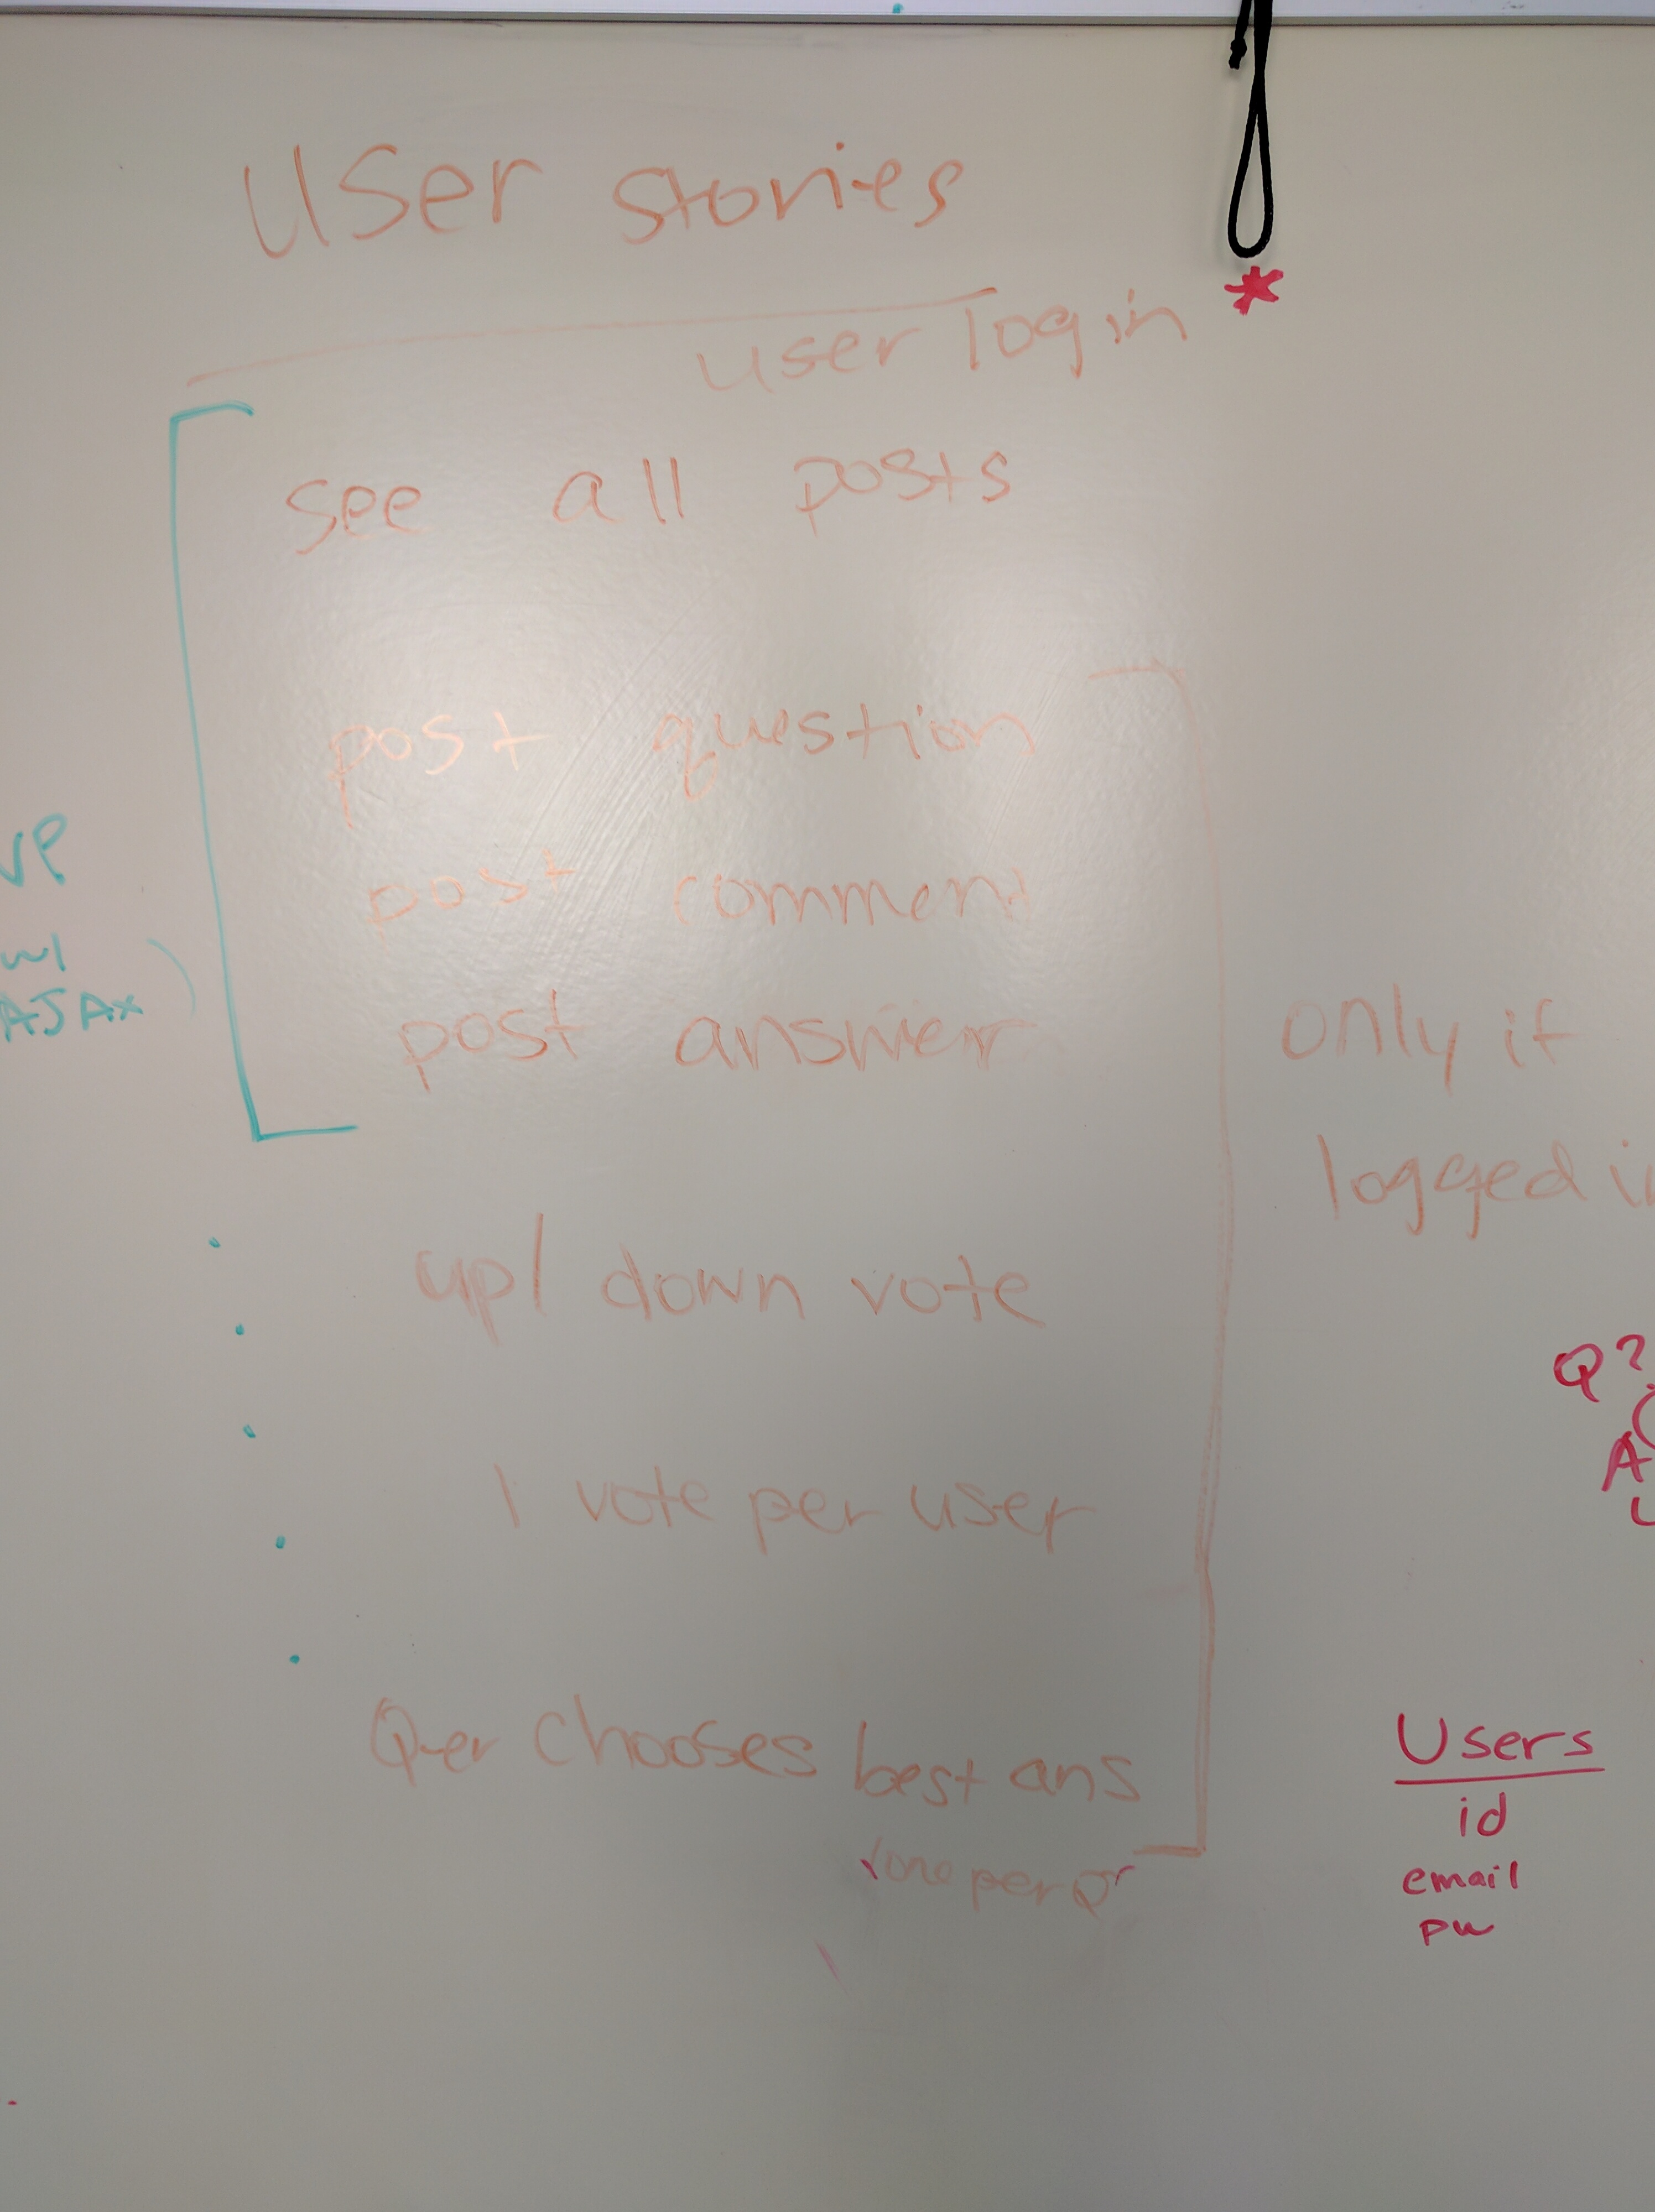 User stories
user login *
see all posts
post question
post comment
VP
w/
AJAX
post answer
only if
logged i
up/down vote
Q?
A
1 vote per user
Q-er chooses best ans
(one per Q)
Users
id
email
pw